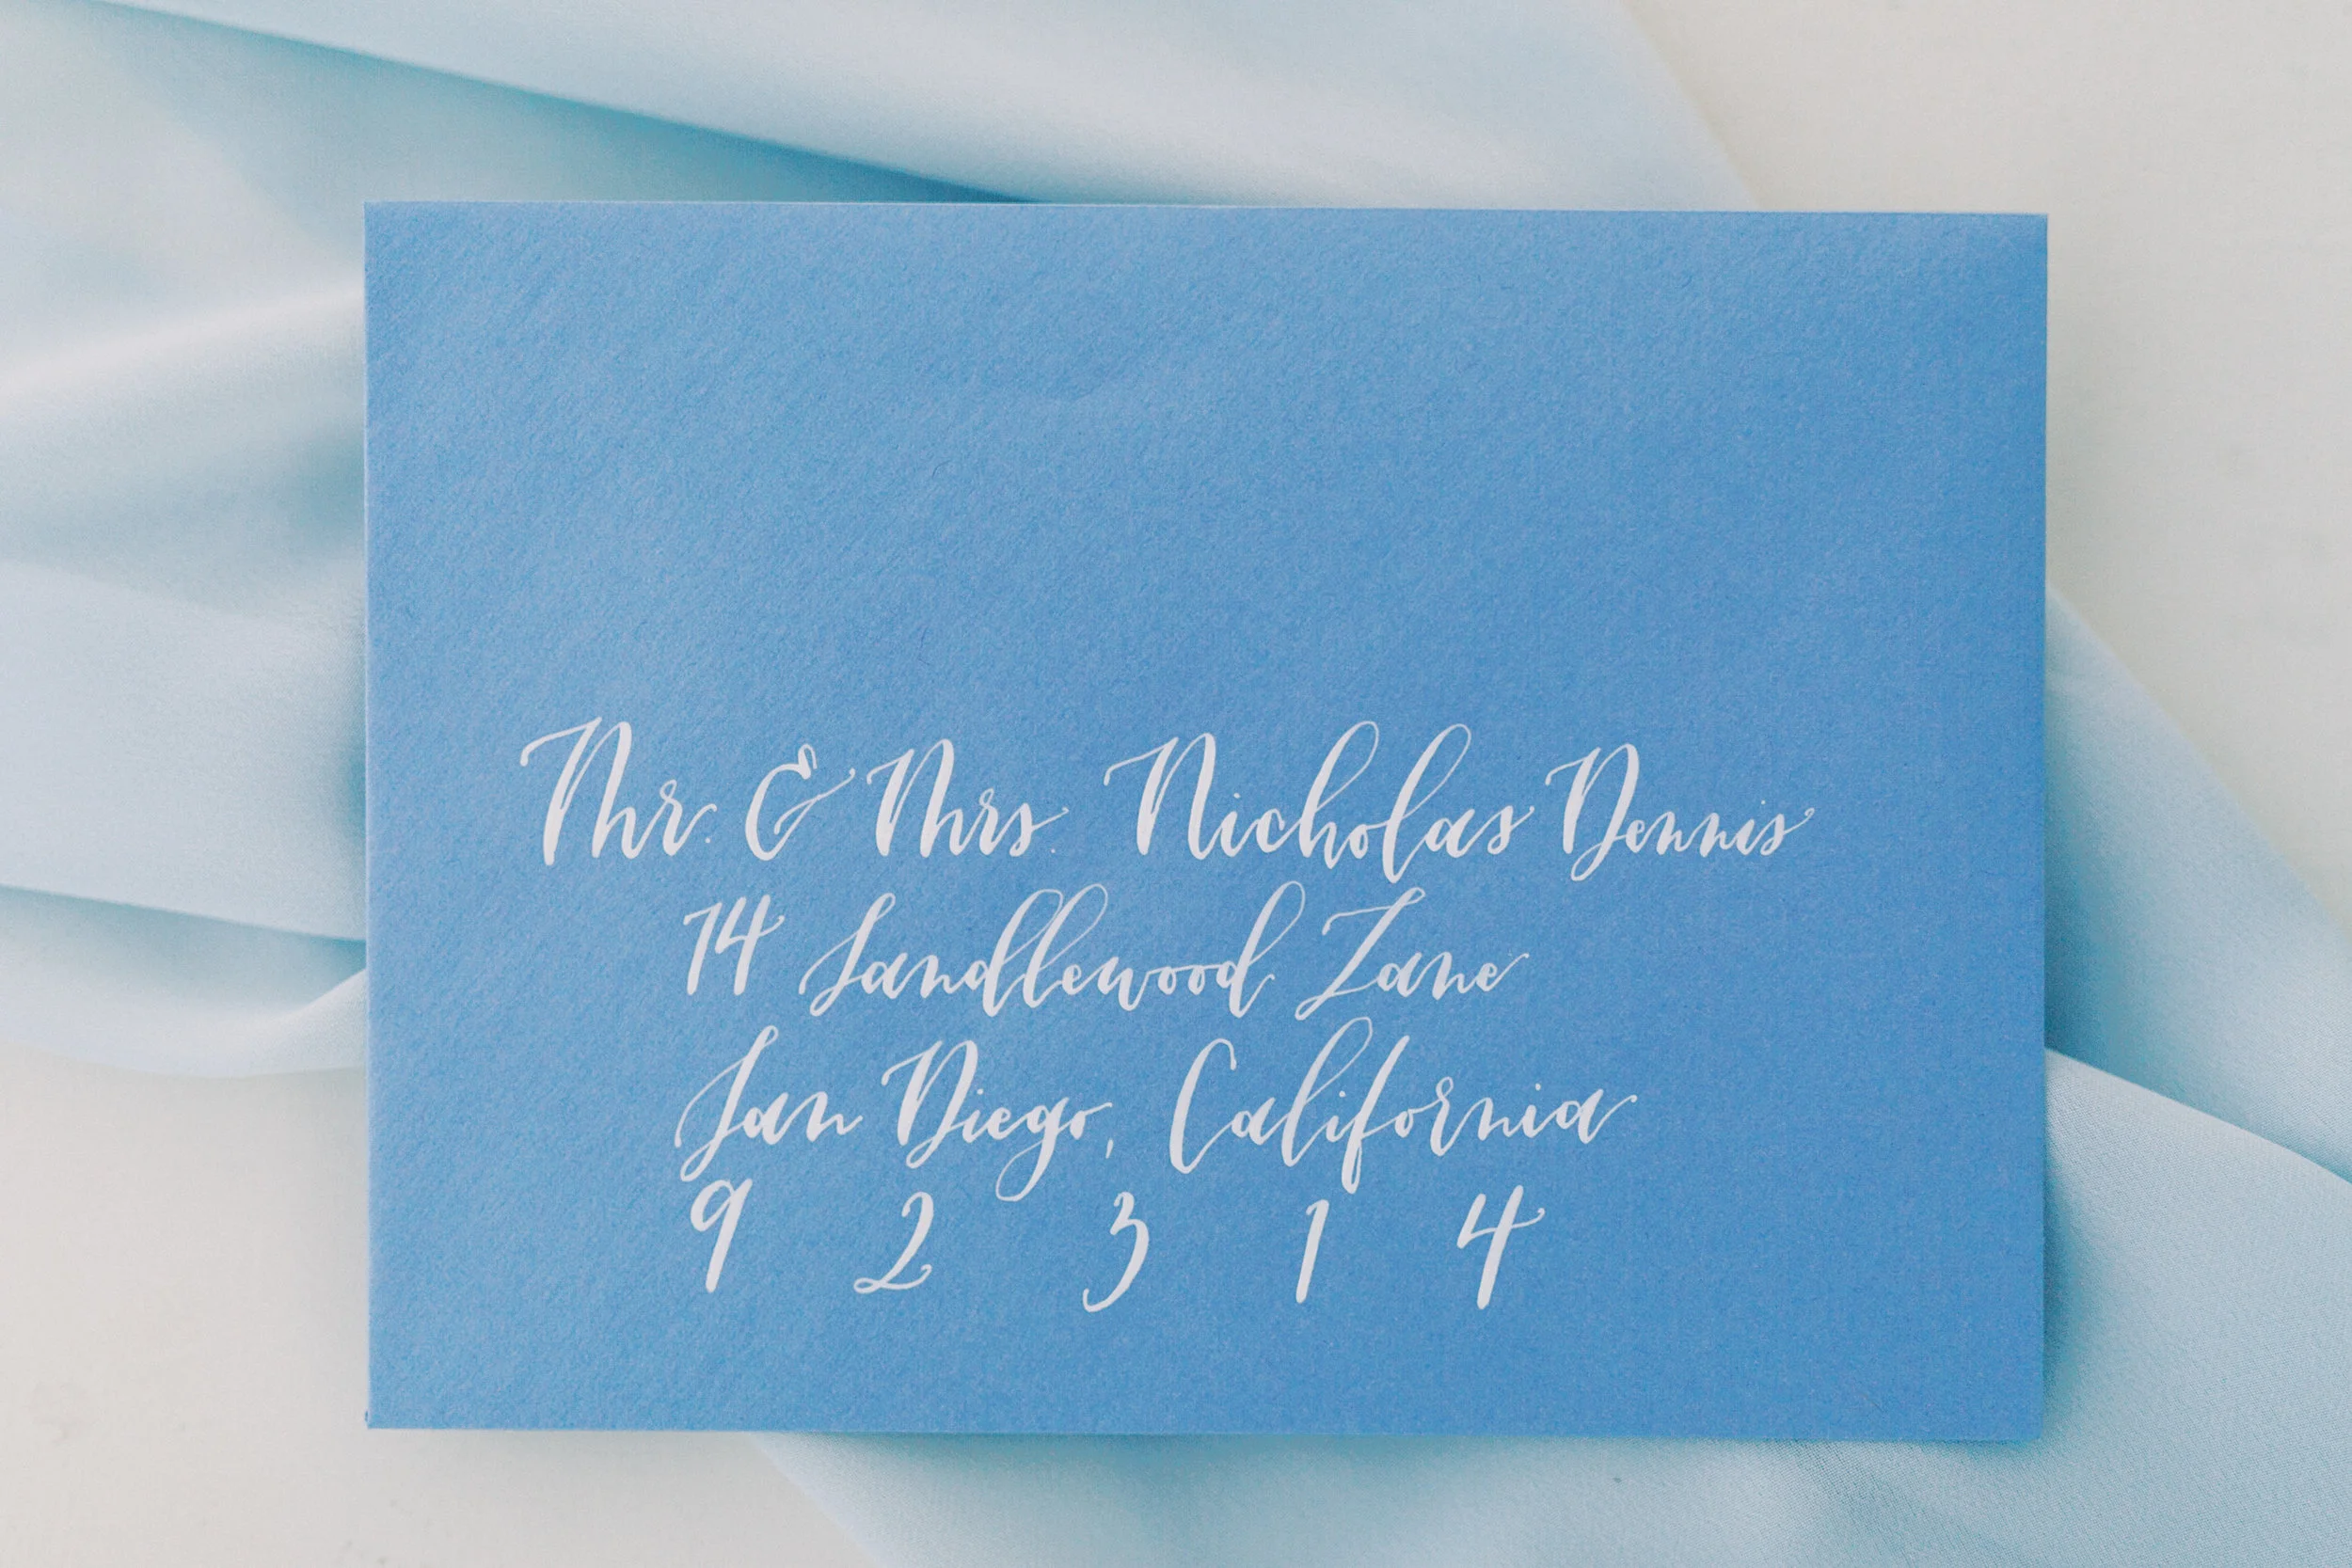 Mr. & Mrs. Nicholas Dennis
14 Sandlewood Lane
San Diego, California
9 2 3 1 4